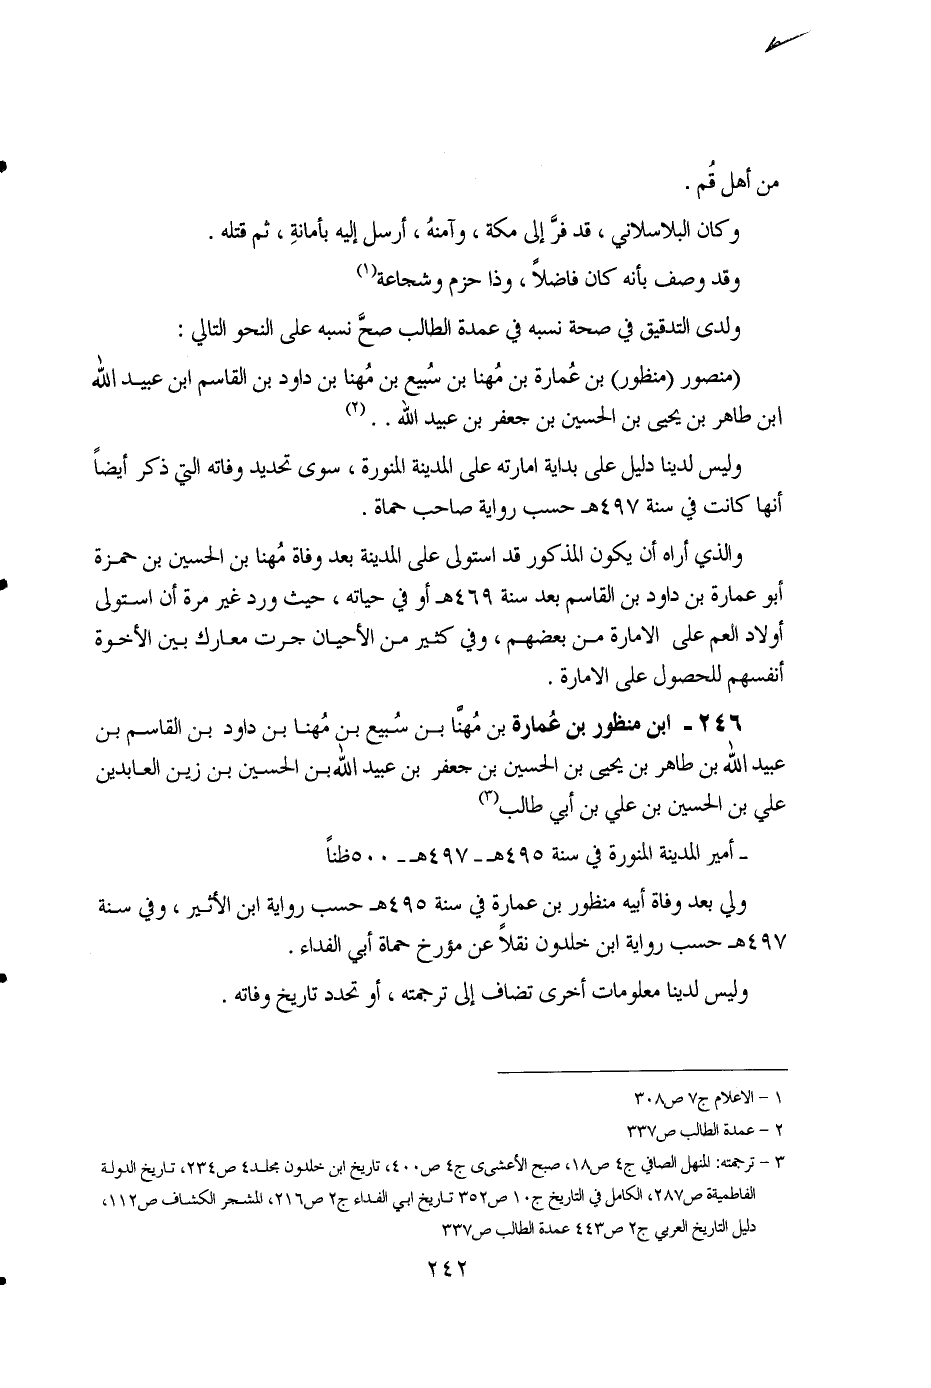 من أهل قُم .
وكان البلاسلاني ، قد فرَّ إلى مكة ، وآمنهُ ، أرسل إليه بأمانةِ ، ثم قتله .
وقد وصف بأنه كان فاضلاً ، وذا حزم وشجاعة(١)
ولدى التدقيق في صحة نسبه في عمدة الطالب صحَّ نسبه على النحو التالي :
(منصور (منظور) بن عُمارة بن مُهنا بن سُبيع بن مُهنا بن داود بن القاسم ابن عبيد الله
ابن طاهر بن يحيى بن الحسين بن جعفر بن عبيد الله . . (٢)
وليس لدينا دليل على بداية امارته على المدينة المنورة ، سوى تحديد وفاته التي ذكر أيضاً
أنها كانت في سنة ٤٩٧هـ حسب رواية صاحب حماة .
والذي أراه أن يكون المذكور قد استولى على المدينة بعد وفاة مُهنا بن الحسين بن حمزة
أبو عمارة بن داود بن القاسم بعد سنة ٤٦٩هـ أو في حياته ، حيث ورد غير مرة أن استولى
أولاد العم على الامارة من بعضهم ، وفي كثير من الأحيان جرت معارك بين الأخوة
أنفسهم للحصول على الامارة .
٢٤٦ - ابن منظور بن عُمارة بن مُهنَّا بن سُبيع بن مُهنا بن داود بن القاسم بن
عبيد الله بن طاهر بن يحيى بن الحسين بن جعفر بن عبيد الله بن الحسين بن زين العابدين
علي بن الحسين بن علي بن أبي طالب(٣)
ـ أمير المدينة المنورة في سنة ٤٩٥هـ ـ ٤٩٧هـ ـ ٥٠٠ظناً
ولي بعد وفاة أبيه منظور بن عمارة في سنة ٤٩٥هـ حسب رواية ابن الأثير ، وفي سنة
٤٩٧هـ حسب رواية ابن خلدون نقلاً عن مؤرخ حماة أبي الفداء .
وليس لدينا معلومات أخرى تضاف إلى ترجمته ، أو تحدد تاريخ وفاته .
١ - الاعلام ج٧ ص٣٠٨
٢ - عمدة الطالب ص٣٣٧
٣ - ترجمته: المنهل الصافي ج٤ ص١٨، صبح الأعشى ج٤ ص٤٠٠، تاريخ ابن خلدون مجلد٤ ص٢٣٤، تاريخ الدولة
الفاطمية ص٢٨٧، الكامل في التاريخ ج١٠ ص٣٥٢ تاريخ ابي الفداء ج٢ ص٢١٦، المشجر الكشاف ص١١٢،
دليل التاريخ العربي ج٢ ص٤٤٣ عمدة الطالب ص٣٣٧
٢٤٢